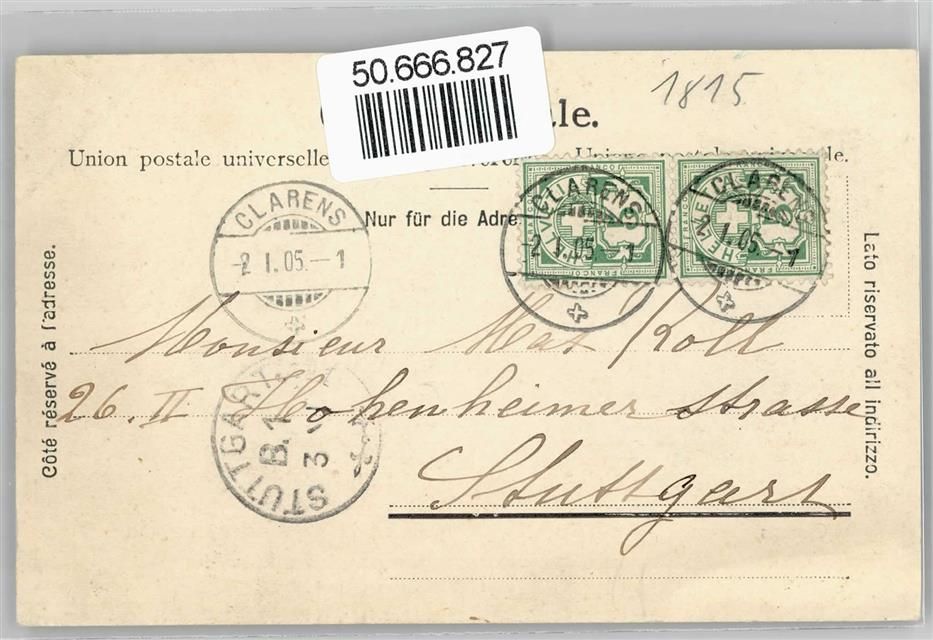 50.666.827
1815
le.
Union postale universelle
le.
Nur für die Adre
CLARENS
-2 1.05.-1
CLARENS
-2 1.05.-1
CLARENS
-2 1.05.-1
FRANCO
FRANCO
Côté réservé à l'adresse.
Lato riservato all indirizzo.
Monsieur Max Roll
26. II Hohenheimer strasse
Stuttgart
STUTTGART
B.1
3